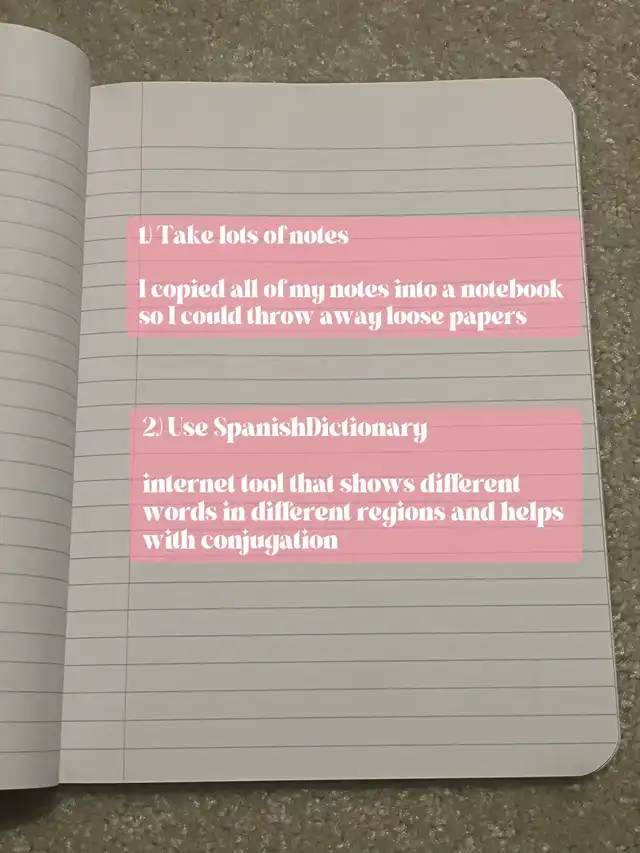 1.) Take lots of notes
I copied all of my notes into a notebook
so I could throw away loose papers
2.) Use SpanishDictionary
internet tool that shows different
words in different regions and helps
with conjugation